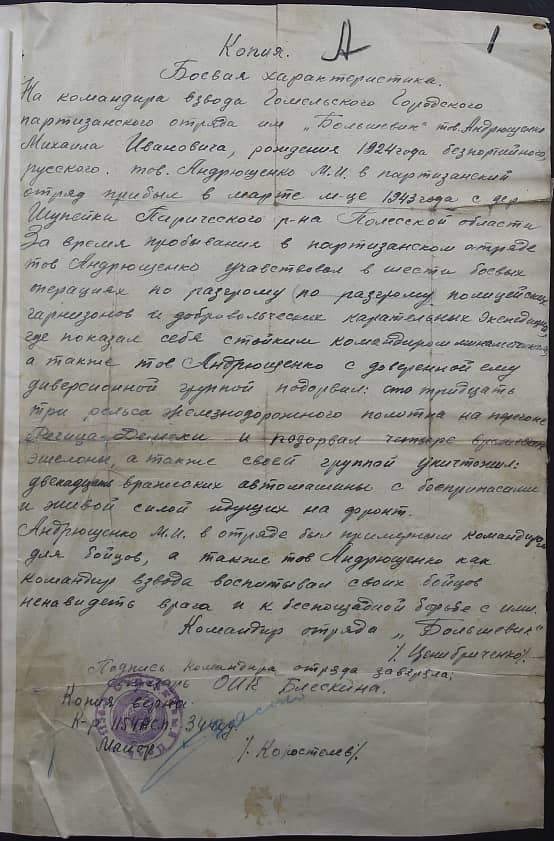 Копия. А 1
Боевая характеристика.
На командира взвода Гомельского Городского
партизанского отряда им „Большевик" тов. Андрющенко
Михаила Ивановича, рождения 1924 года безпортийного,
русского. тов. Андрющенко М.И. в партизанский
отряд прибыл в марте м-це 1943 года с дер
Шупейки Паричского р-на Полесской области
За время пробывания в партизанском отряде
тов Андрющенко учавствовал в шести боевых
операциях по разгрому (по разгрому полицейских
гарнизонов и добровольческих карательных экспедиций
где показал себя стойким командиром
а также тов Андрющенко с доверенной ему
диверсионной группой подорвал: сто тридцать
три рельса железнодорожного полотна на перегоне
Речица - и подорвал четыре вражеских
эшелона, а также своей группой уничтожил:
двенадцать вражеских автомашины с боеприпасами
и живой силой идущих на фронт.
Андрющенко М.И. в отряде был примерным командиром
для бойцов, а также тов Андрющенко как
командир взвода воспитывал своих бойцов
ненавидеть врага и к беспощадной борьбе с ним.
Командир отряда „Большевик"
Подпись командира отряда заверяла:
ОИК Блескина.
Копия верна
К-р 1154 АСП 34
Майор /. Коростелев/.